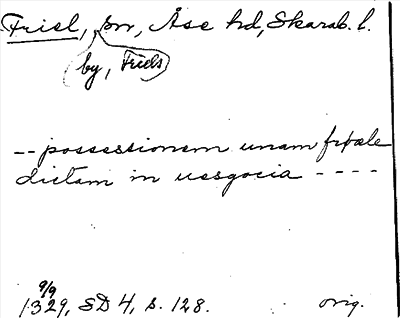 Friel, sn, Åse hd, Skarab. l.
by, Friels
-- possessionem unam friæle
dictam in uesgocia ----
9/9
1329, SD 4, s. 128. orig.